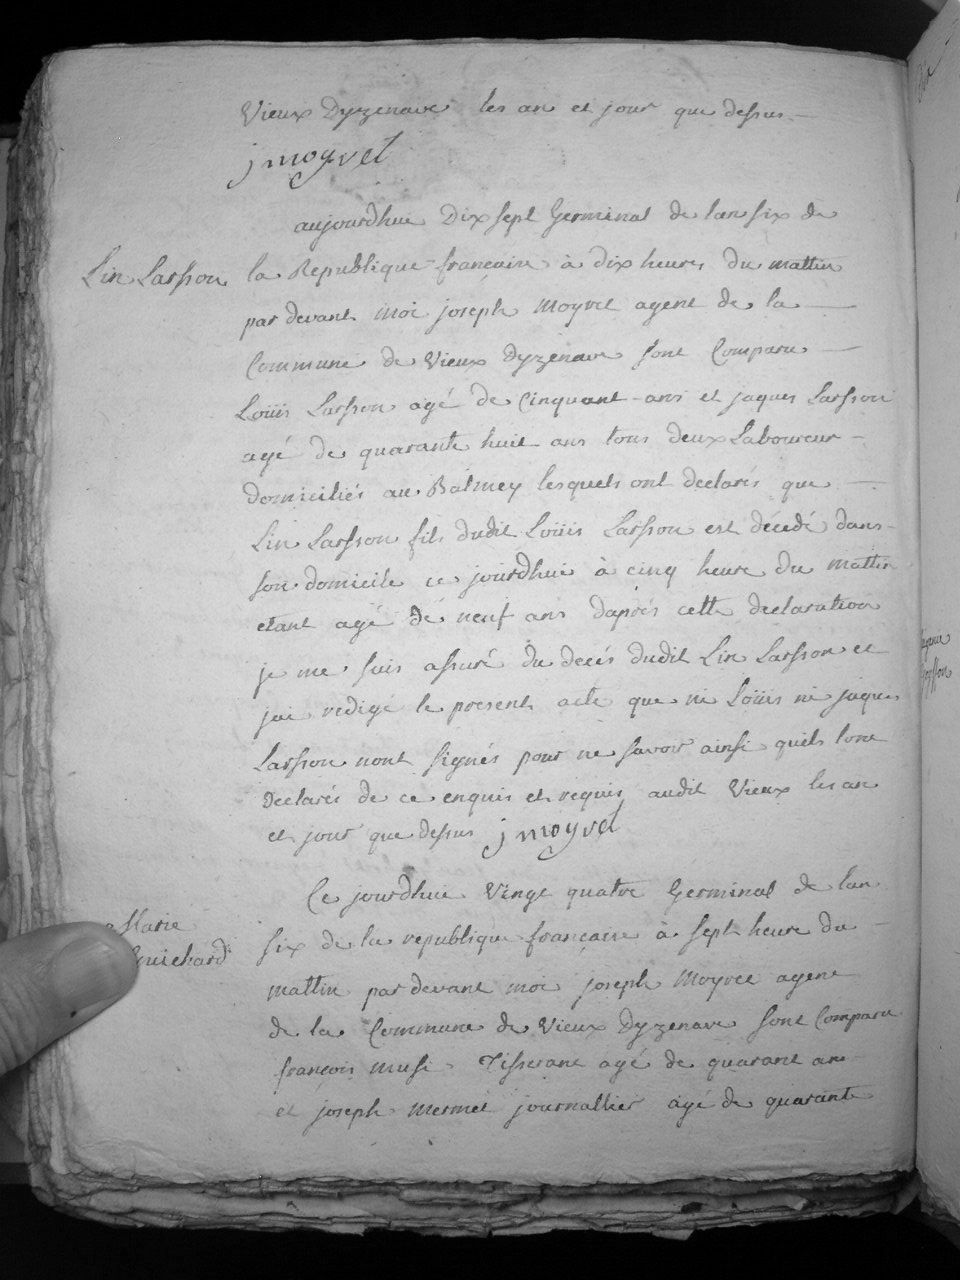 Vieux Dyzenave les an et jour que dessus
j moyret
aujourdhui Dix sept Germinal de lan six de
Lin Larsson
la Republique francaine à dix heures du mattin
par devant moi joseph moyret agent de la
Commune de Vieux Dyzenave sont Comparu
Loüis Larsson agé de Cinquant ans et jaques Larsson
agé de quarante huit ans tous deux Laboureur
domiciliés au Balmey lesquels ont declarés que
Lin Larsson fils dudit Loüis Larsson est décédé dans
son domicile ce jourdhui à cinq heure du mattin
etant agé de neuf ans daprés cette declaration
je me suis assuré du decés dudit Lin Larsson et
jai redigé le present acte que ni Loüis ni jaques
Larsson nont signés pour ne savoir ainsi quils lont
declarés de ce enquis et requis audit Vieux les an
et jour que dessus j moyret
Ce jourdhui Vingt quatre Germinal de lan
Marie
Guichard
six de la republique francaise à sept heure du
mattin par devant moi joseph moyret agent
de la Commune de Vieux Dyzenave sont Comparu
françois musi Tisserant agé de quarant ans
et joseph mermet journallier agé de quarante